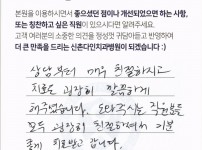 본원을 이용하시면서 좋으셨던 점이나 개선되었으면 하는 사항,
또는 칭찬하고 싶은 직원이 있으시다면 알려주세요.
고객 여러분의 소중한 의견을 정성껏 귀담아듣고 반영하여
더 큰 만족을 드리는 신촌다인치과병원이 되겠습니다 :)
상담부터 매우 친절하시고
치료도 굉장히 깔끔하게
해주셨습니다.
모두 굉장히 친절하셔서 기분
좋게 치료받고 갑니다.